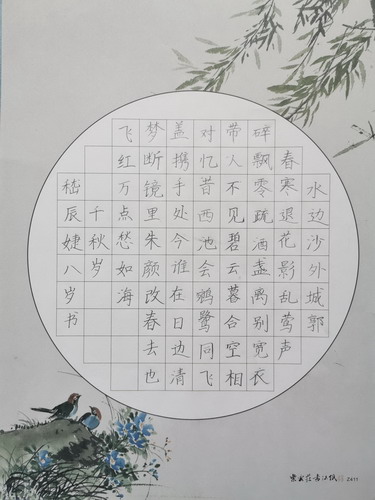 水边沙外城郭
春寒退花影乱莺声
碎飘零疏酒盏离别宽衣
带人不见碧云暮合空相
对忆昔西池会鹓鹭同飞
盖携手处今谁在日边清
梦断镜里朱颜改春去也
飞红万点愁如海
千秋岁
嵇辰婕八岁书